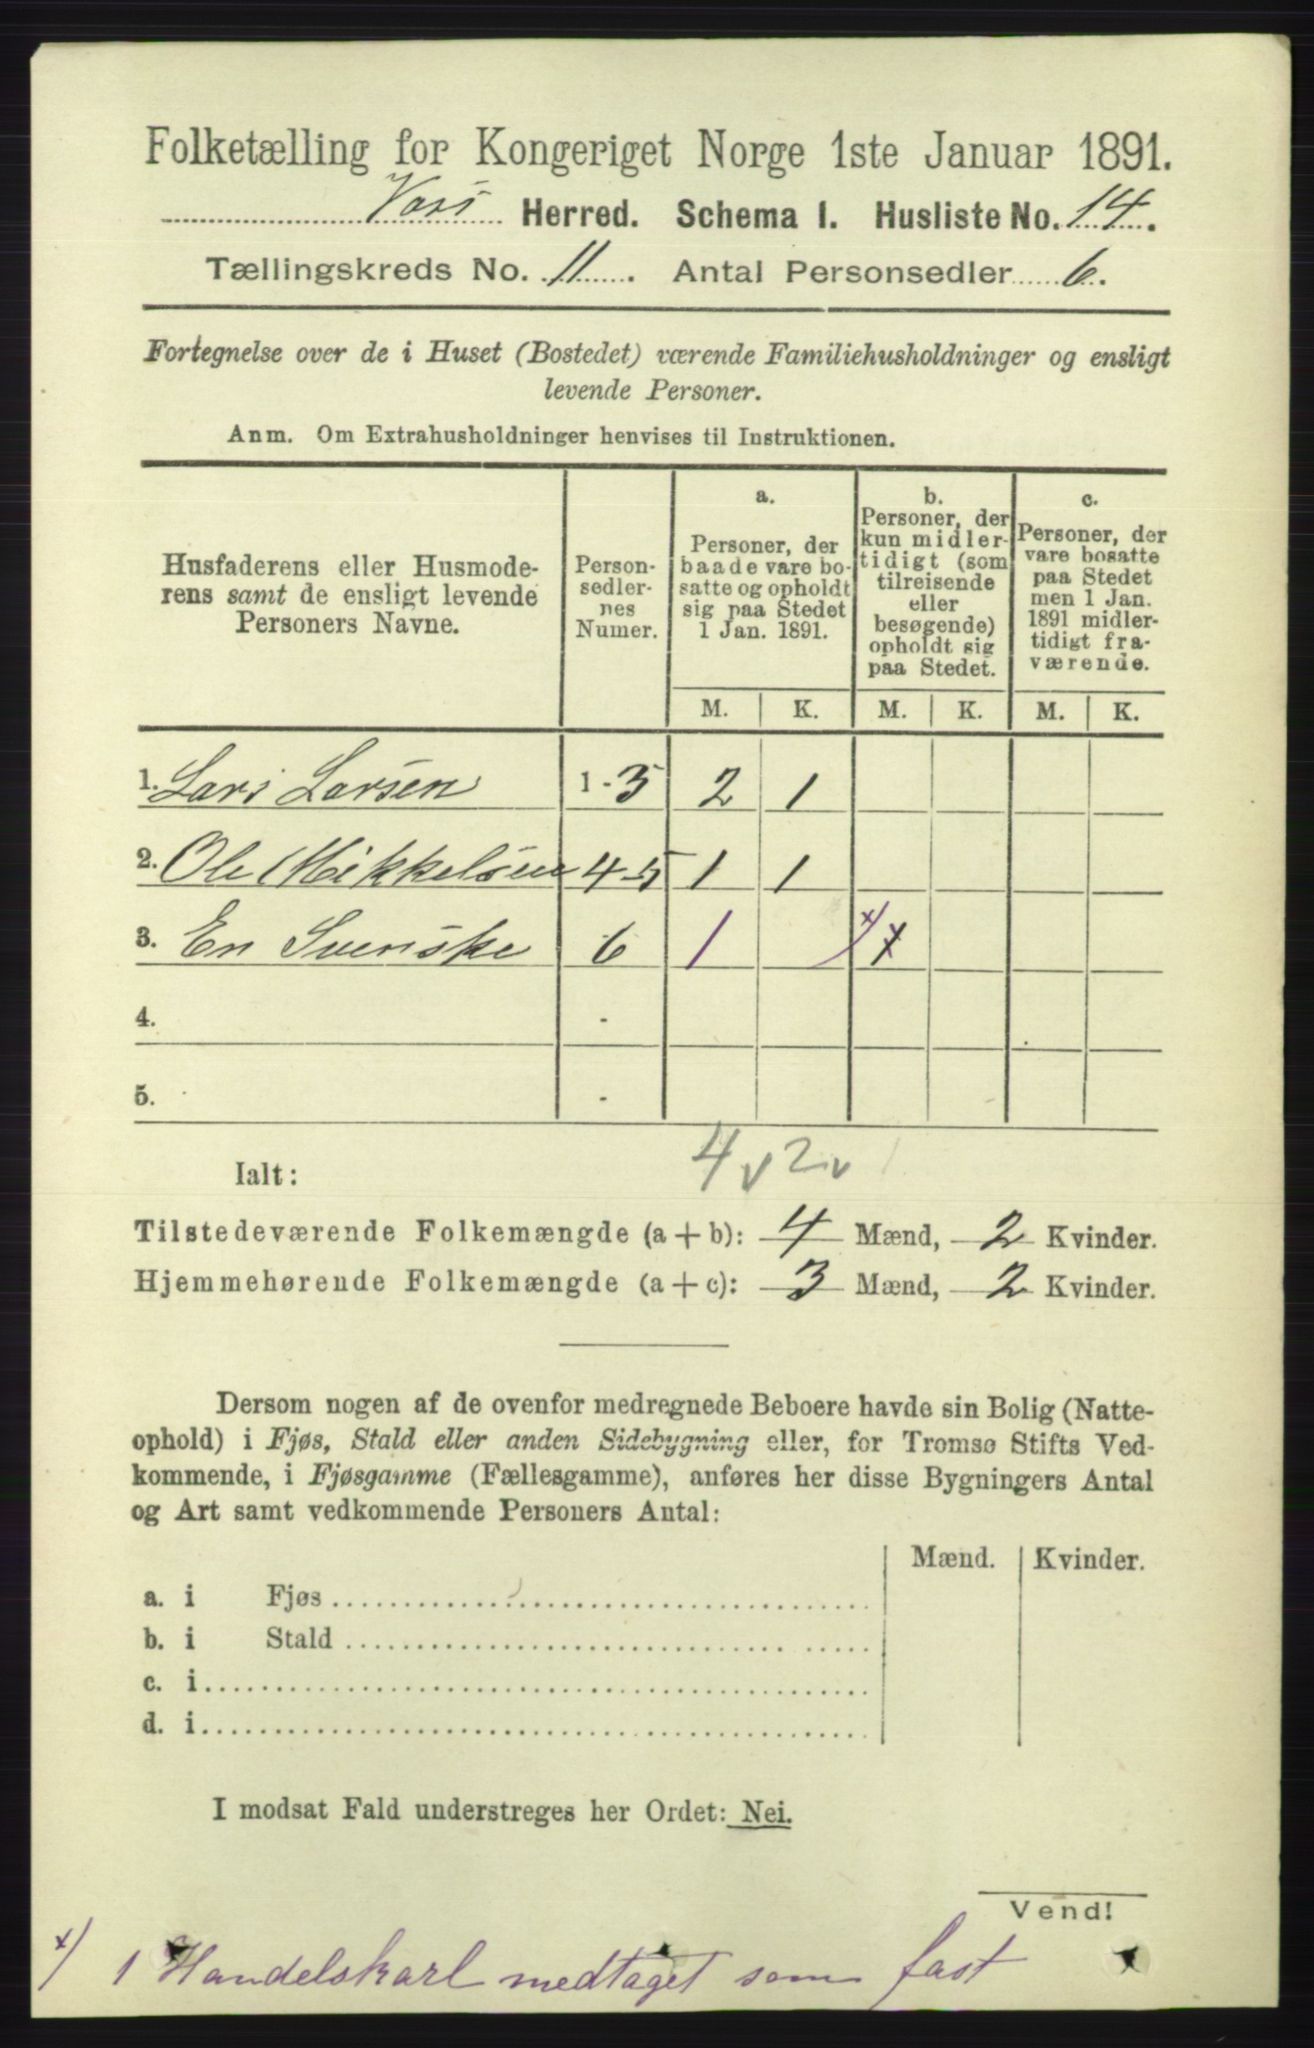 Folketælling for Kongeriget Norge 1ste Januar 1891.
Voss Herred. Schema I. Husliste No. 14.
Tællingskreds No. 11. Antal Personsedler 6.
Fortegnelse over de i Huset (Bostedet) værende Familiehusholdninger og ensligt
levende Personer.
Anm. Om Extrahusholdninger henvises til Instruktionen.
Husfaderens eller Husmode-
rens samt de ensligt levende
Personers Navne.
Person-
sedler-
nes
Numer.
a.
Personer, der
baade vare bo-
satte og opholdt
sig paa Stedet
1 Jan. 1891.
b.
Personer, der
kun midler-
tidigt (som
tilreisende
eller
besøgende)
opholdt sig
paa Stedet.
c.
Personer, der
vare bosatte
paa Stedet
men 1 Jan.
1891 midler-
tidigt fra-
værende.
M. K. M. K. M. K.
1. Lars Larsen 1-3 2 1
2. Ole Mikkelsen 4-5 1 1
3. En Svenske 6 1 x) 1
4. -
5. -
4 v 2 v
Ialt:
Tilstedeværende Folkemængde (a + b): 4 Mænd, 2 Kvinder.
Hjemmehørende Folkemængde (a + c): 3 Mænd, 2 Kvinder.
Dersom nogen af de ovenfor medregnede Beboere havde sin Bolig (Natte-
ophold) i Fjøs, Stald eller anden Sidebygning eller, for Tromsø Stifts Ved-
kommende, i Fjøsgamme (Fællesgamme), anføres her disse Bygningers Antal
og Art samt vedkommende Personers Antal:
Mænd. Kvinder.
a. i Fjøs
b. i Stald
c. i
d. i
I modsat Fald understreges her Ordet: Nei.
Vend!
x) 1 Handelskarl medtaget som fast